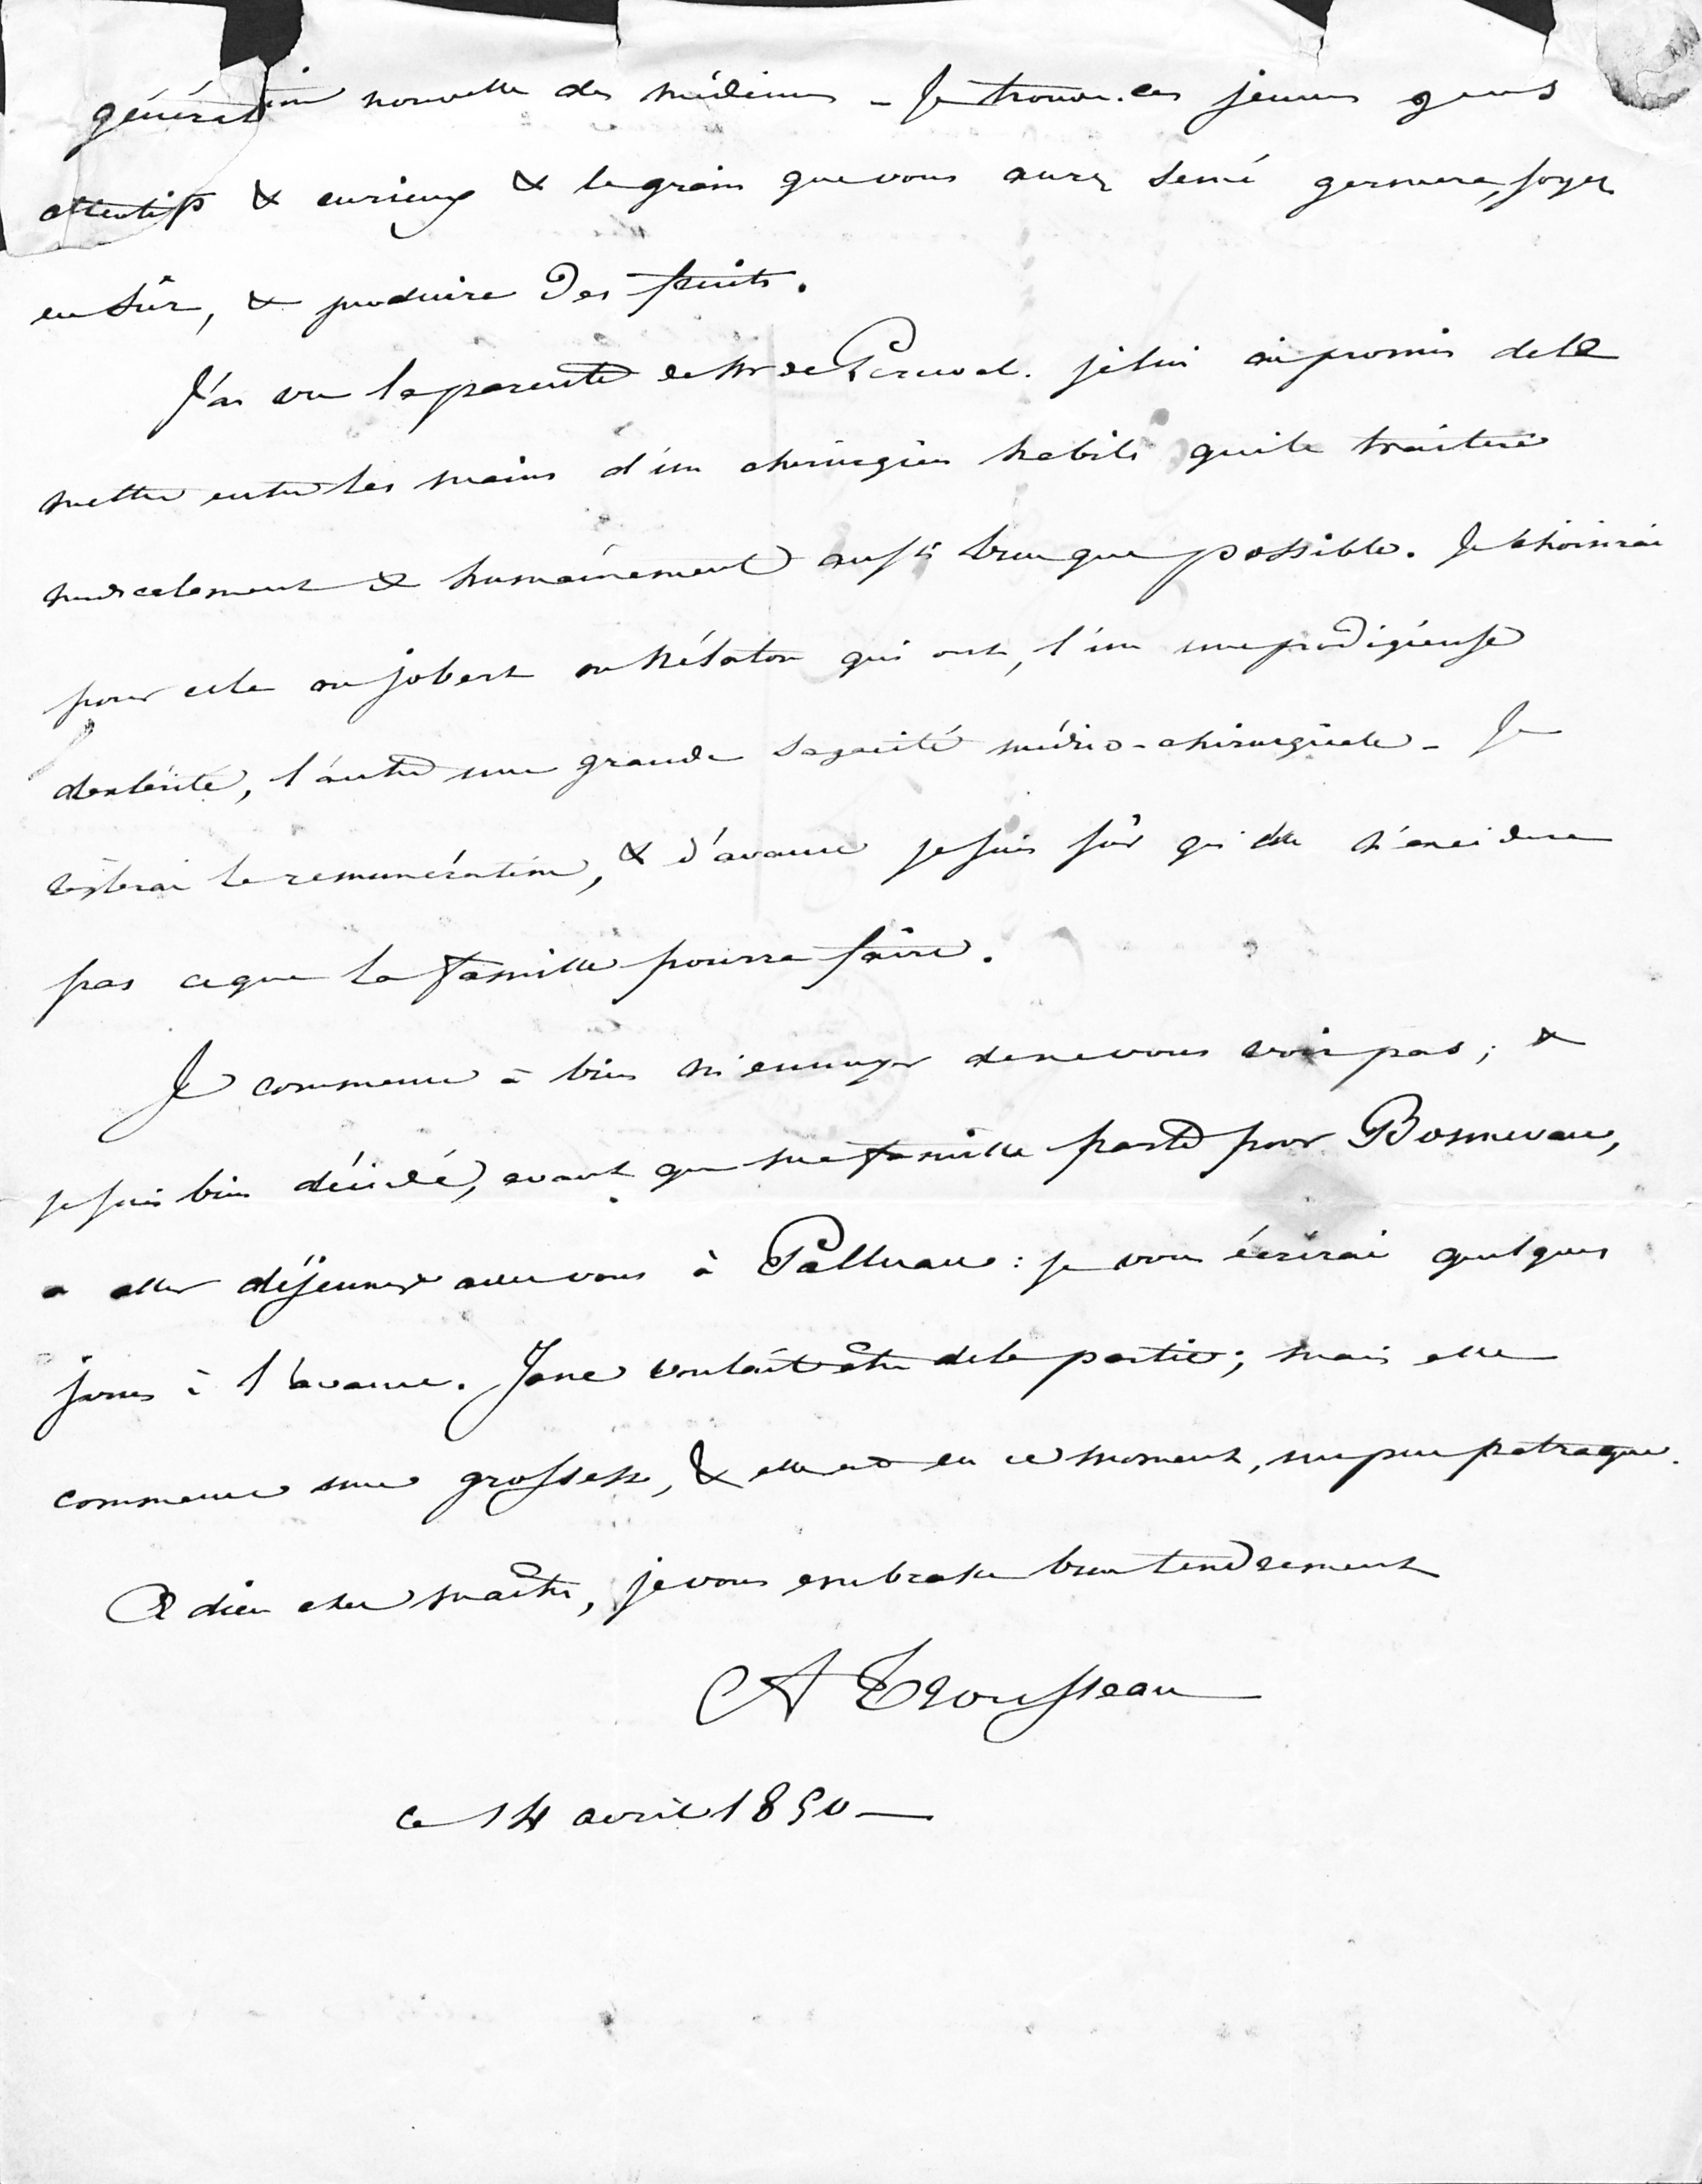 génération nouvelle des médecins - Je trouve ces jeunes gens
attentifs & curieux & le grain que vous aurez semé germera, soyez
en sûr, & produire des fruits.
J'ai vu la parente de Mr de je lui ai promis de la
mettre entre les mains d'un chirurgien habile qui la traitera
médicalement & humainement aussi bien que possible. Je choisirai
pour cela ou Jobert ou Nélaton qui ont, l'un une prodigieuse
dextérité, l'autre une grande sagacité médico-chirurgicale - Je
la rémunération, & d'avance je suis sûr qu'elle n'excédera
pas ce que la famille pourra faire.
Je commence à bien m'ennuyer de ne vous voir pas; &
je suis bien décidé, avant que ma famille parte pour Bonneveau,
a aller déjeuner avec vous à Palluau : je vous écrirai quelques
jours à l'avance. Jane voulait être de la partie; mais elle
commence une grossesse, & elle est en ce moment, un peu patraque.
Adieu cher maître, je vous embrasse bien tendrement
A Trousseau
ce 14 avril 1850 —